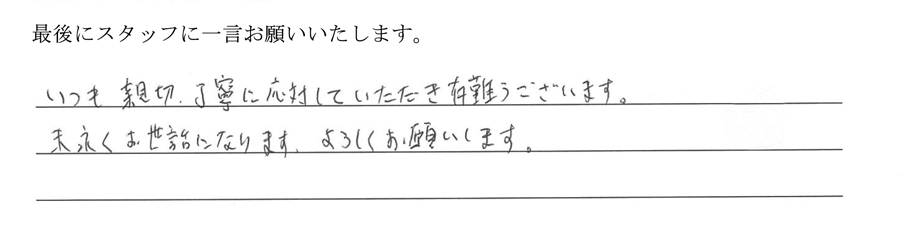 最後にスタッフに一言お願いいたします。
いつも親切、丁寧に応対していただき有難うございます。
末永くお世話になります、よろしくお願いします。